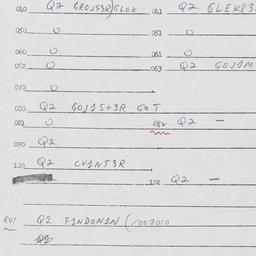 040 Q2 GROJS3R)GLOK 041 Q2 GLEKP3
050 U 051 U
060 U 061 U
062 U 063 Q2 GOJ1M
070 U
080 Q2 GOJ1S+3R GOT
081 U 082 Q2 —
090 Q2
100 Q2 CV1NT3R
102 Q2 —
901 Q2 F1NDON1N (/007010